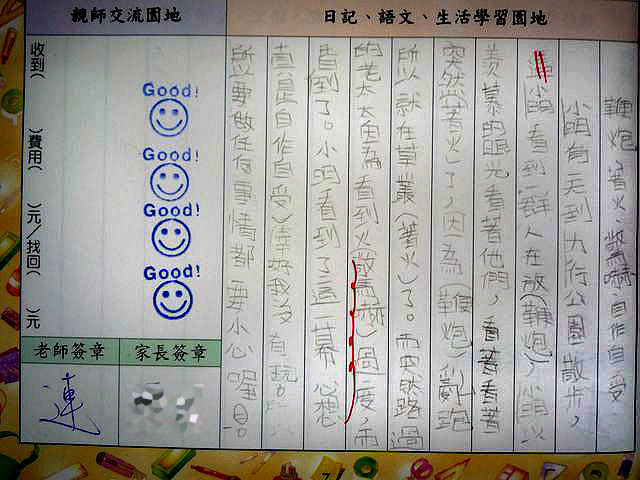 親師交流園地
日記、語文、生活學習園地
收到(　)費用(　)元/找回(　)元
Good!
Good!
Good!
Good!
老師簽章
家長簽章
連
鞭炮 著火 驚嚇 自作自受
小明有一天到大行公園散步,
小明看到一群人在放(鞭炮),小明以
羨慕的眼光看著他們,看著看著
突然(著火)了,因為(鞭炮)亂跑
所以就在草叢(著火)了。而突然路過
的老太太因為看到火(驚嚇)過度,而
昏倒了。小明看到了這一幕心想
真是(自作自受)幸好我沒有玩。
所以要做任何事情都要小心喔!
7